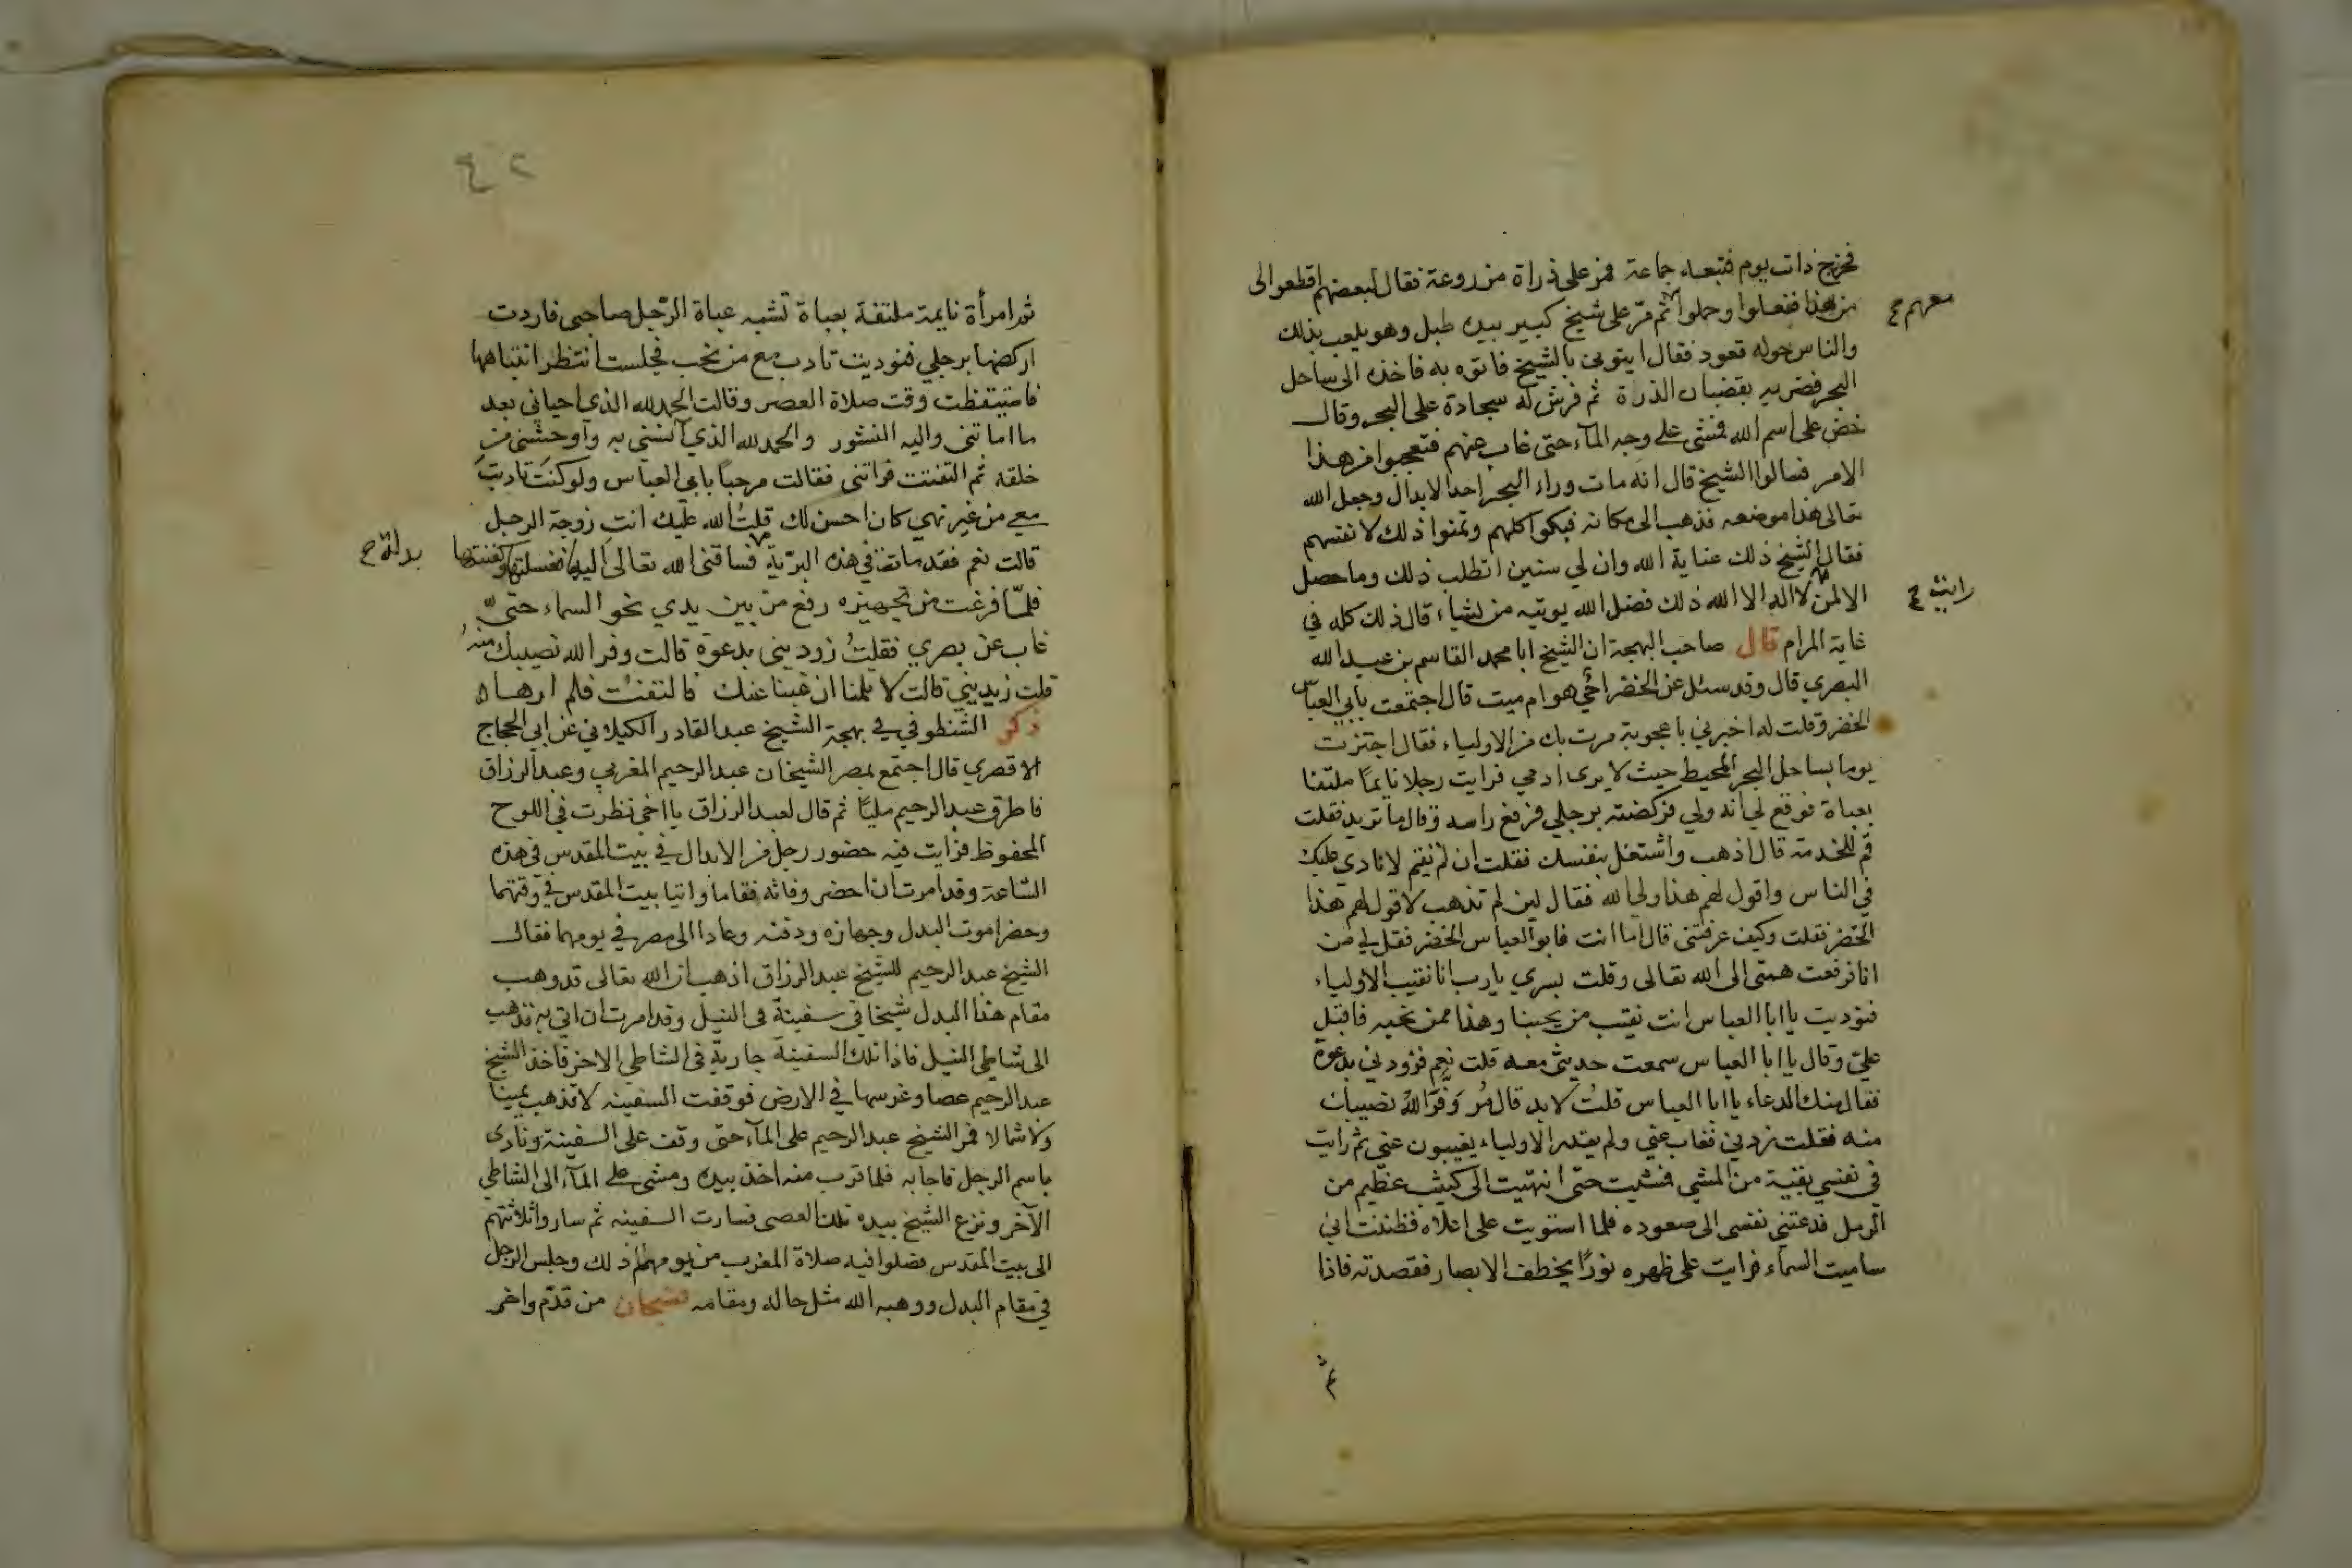 فخرج ذات يوم فتبعه جماعة فمر على ذراة مزروعة فقال لبعضهم اقطعوا لى
من هذا ففعلوا وحملوا ثم مرّ على شيخ كبير بيده طبل وهو يلعب بذلك
معهم صح
والناس حوله قعود فقال ايتونى بالشيخ فاتوه به فاخذه الى ساحل
البحر فضربه بقضبان الذرة ثم فرش له سجادة على البحر وقال
خض على اسم الله فمشى على وجه المآء حتى غاب عنهم فتعجبوا من هذا
الامر فسالوا الشيخ قال انه مات وراء البحر احد الابدال وجعل الله
تعالى هذا موضعه فذهب الى مكانه فبكوا كلهم وتمنوا ذلك لانفسهم
فقال الشيخ ذلك عناية الله وان لي سنين اتطلب ذلك وما حصل
الا لمن لا اله الا الله ذلك فضل الله يوتيه من يشاء قال ذلك كله في
رايت صح
غاية المرام قال صاحب البهجة ان الشيخ ابا محمد القاسم بن عبد الله
البصري قال وقد سئل عن الخضر احي هو ام ميت قال اجتمعت بابي العباس
الخضر وقلت له اخبرني باعجوبة مرت بك من الاولياء فقال اجتزت
يوما بساحل البحر المحيط حيث لا يرى ادمي فرايت رجلا نايمًا ملتفا
بعباة فوقع لي انه ولي فركضته برجلي فرفع راسه وقال ما تريد فقلت
قم للخدمة قال اذهب واشتغل بنفسك فقلت ان لم تقم لانادي عليك
في الناس واقول لهم هذا ولي الله فقال لين لم تذهب لاقول لهم هذا
الخضر فقلت وكيف عرفتنى قال اما انت فابو العباس الخضر فقل لي من
انا فرفعت همتى الى الله تعالى وقلت بسري يا رب انا نقيب الاولياء
فنوديت يا ابا العباس انت نقيب من يحبنا وهذا ممن نحبه فاقبل
عليّ وقال يا ابا العباس سمعت حديثى معه قلت نعم فزودني بدعوة
فقال منك الدعاء يا ابا العباس قلتُ لا بد قال مُر وَفّر اللهُ نصيبك
منه فقلت زدني فغاب عني ولم يقدر الاولياء يغيبون عني ثم رايت
في نفسي بقية من المشي فمشيت حتى انتهيت الى كثيب عظيم من
الرمل فدعتني نفسى الى صعوده فلما استويت على اعلاه فظننت اني
ساميت السماء فرايت على ظهره نورًا يخطف الابصار فقصدته فاذا
ثم
٢٤
ثم امرأة نايمة ملتفة بعباة تشبه عباة الرّجل صاحبى فاردت
اركضها برجلي فنوديت تادب مع من نحب فجلست انتظر انتباهها
فاستيقظت وقت صلاة العصر وقالت الحمد لله الذي احياني بعد
ما اماتنى واليه النشور والحمد لله الذي آنسني به واوحشنى من
خلقه ثم التفتت فراتنى فقالت مرحبًا بابي العباس ولو كنت تادبت
معي من غير نهي كان احسن لك قلتُ الله عليك انتِ زوجة الرجل
قالت نعم فقد ماتت في هذه البرّية فساقنى الله تعالى اليها فغسلتها وكفنتها
بدلة صح
فلمّا فرغت من تجهيزه رفع من بين يدي نحو السماء حتىّ
غاب عن بصري فقلتُ زوديني بدعوة قالت وفر الله نصيبك منه
قلت زيديني قالت لا تلمنا ان غبنا عنك فالتفت فلم ارها
ذكر الشنطوفي في بهجة الشيخ عبد القادر الكيلاني عن ابي الحجاج
الاقصري قال اجتمع بمصر الشيخان عبد الرحيم المغربي وعبد الرزاق
فاطرق عبد الرحيم مليًا ثم قال لعبد الرزاق يا اخي نظرت في اللوح
المحفوظ فرايت فيه حضور رجل من الابدال في بيت المقدس في هذه
السّاعة وقد امرت ان احضر وفاته فقاما واتيا بيت المقدس في وقتهما
وحضرا موت البدل وجهازه ودفنه وعادا الى مصر في يومهما فقال
الشيخ عبد الرحيم للشيخ عبد الرزاق اذهب ان الله تعالى قد وهب
مقام هذا البدل شيخا في سفينة في النيل وقد امرت ان اتي به فذهب
الى شاطى النيل فاذا تلك السفينة جارية في الشاطي الاخر فاخذ الشيخ
عبد الرحيم عصا وغرسها في الارض فوقفت السفينه لا تذهب يمينا
ولا شمالا فمر الشيخ عبد الرحيم على المآء حتى وقف على السفينة ونادى
باسم الرجل فاجابه فلما قرب منه اخذ بيده ومشى على المآء الى الشاطي
الآخر ونزع الشيخ بيده تلك العصى فسارت السفينه ثم ساروا ثلاثتهم
الى بيت المقدس فصلوا فيه صلاة المغرب من يومهم ذلك وجلس الرجل
في مقام البدل ووهبه الله مثل حاله ومقامه فسبحان من قدّم واخر